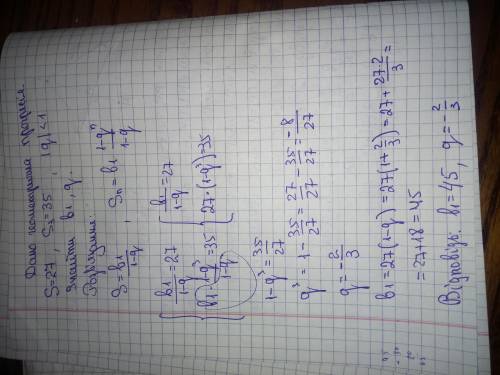 Дано геометрична прогресія
S=27 , S₃=35 , |q|<1
Знайти b₁, q.
Розв'язання:
S = b₁/(1-q) , Sₙ = b₁ (1-qⁿ)/(1-q)
{ b₁/(1-q) = 27 { b₁/(1-q) = 27
{ b₁ (1-q³)/(1-q) = 35 { 27·(1-q³)=35
1-q³ = 35/27
q³ = 1 - 35/27 = 27/27 - 35/27 = -8/27
q = -2/3
b₁ = 27(1-q) = 27(1+2/3) = 27 + 27·2/3 =
= 27+18 = 45
Відповідь: b₁=45, q = -2/3